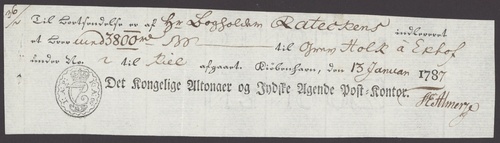 Til Bortsendelse er af Hr Bogholder Rateckens indleveret
et Brev med 3800 til Grev Holk à Ekhof
under No. 2 til Kiel afgaaet. Kiöbenhavn, den 13 Januar 1787
Det Kongelige Altonaer og Jydske Agende Post-Kontor.